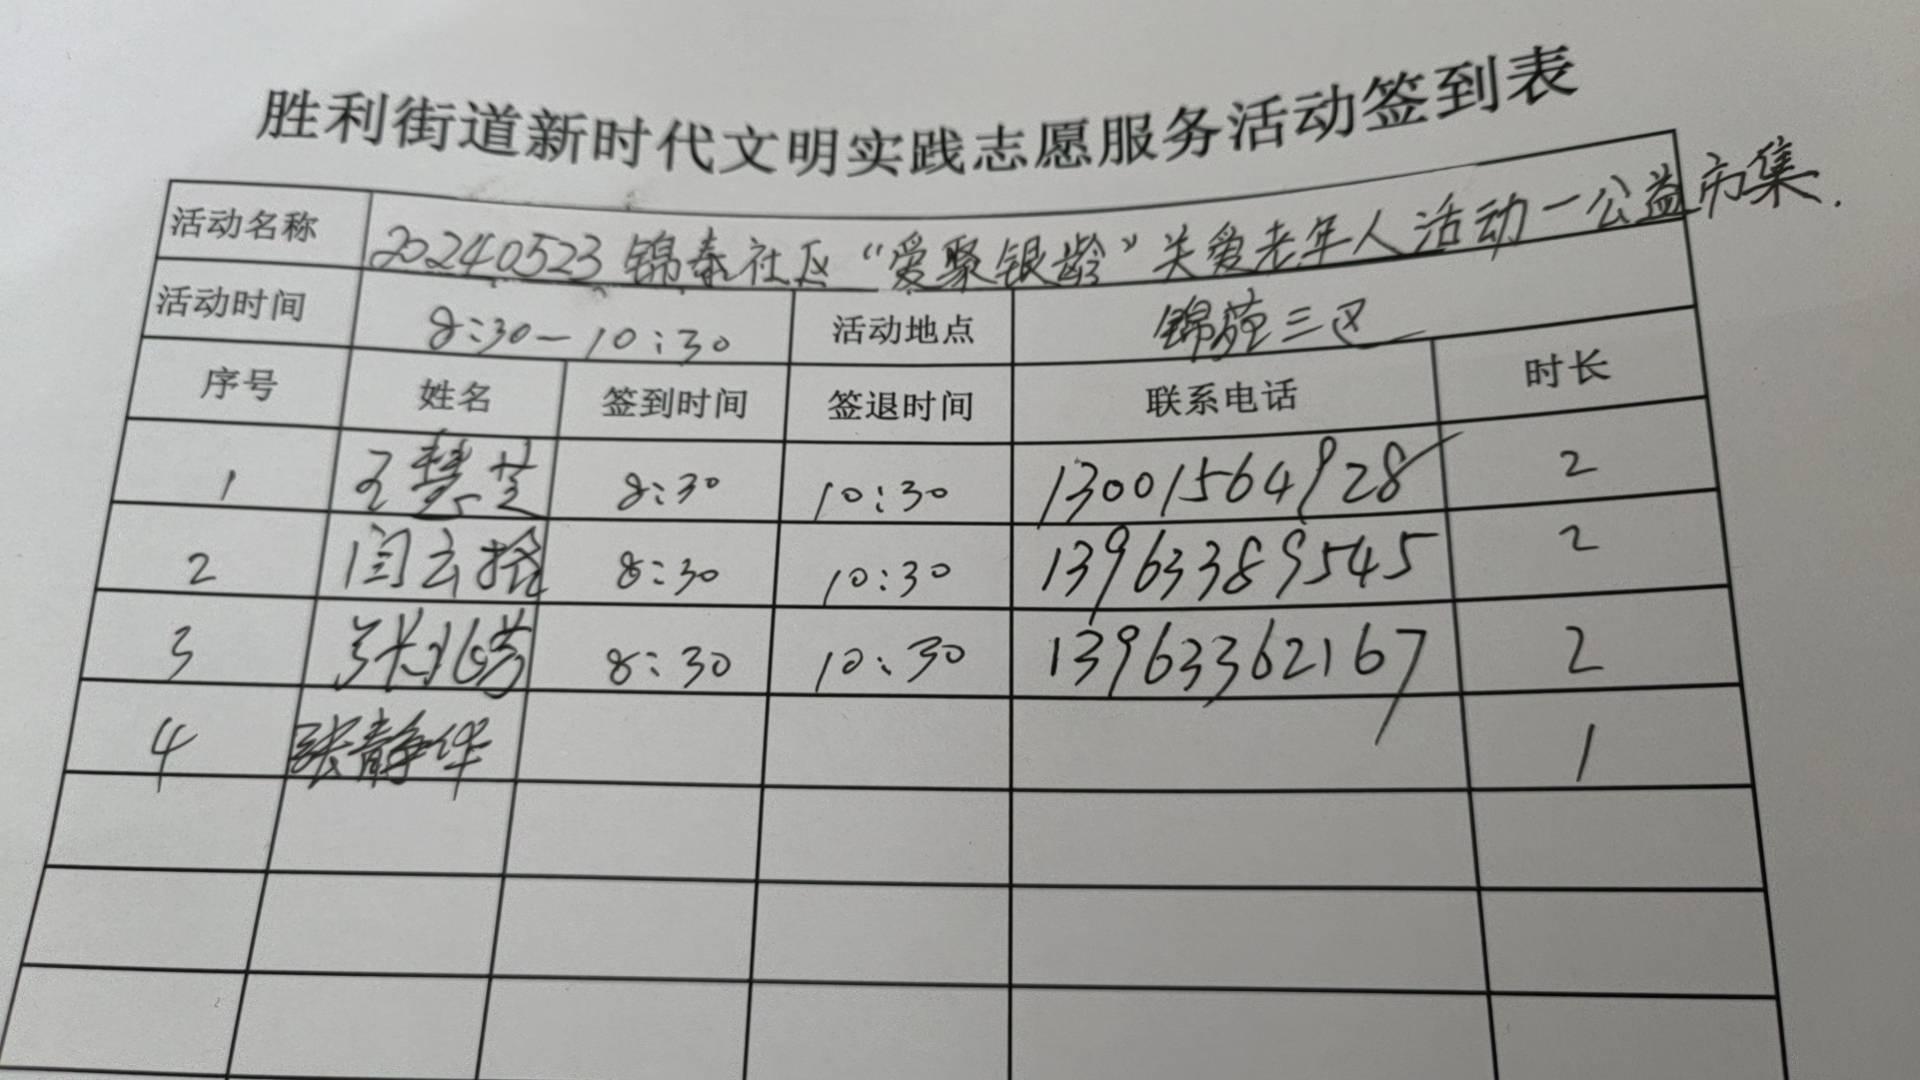 胜利街道新时代文明实践志愿服务活动签到表
活动名称 20240523锦泰社区“爱聚银龄”关爱老年人活动—公益市集.
活动时间 8:30—10:30 活动地点 锦苑三区
序号 姓名 签到时间 签退时间 联系电话 时长
1 王慧芝 8:30 10:30 13001564928 2
2 闫云 8:30 10:30 13963389545 2
3 张 8:30 10:30 13963362167 2
4 张静华 1